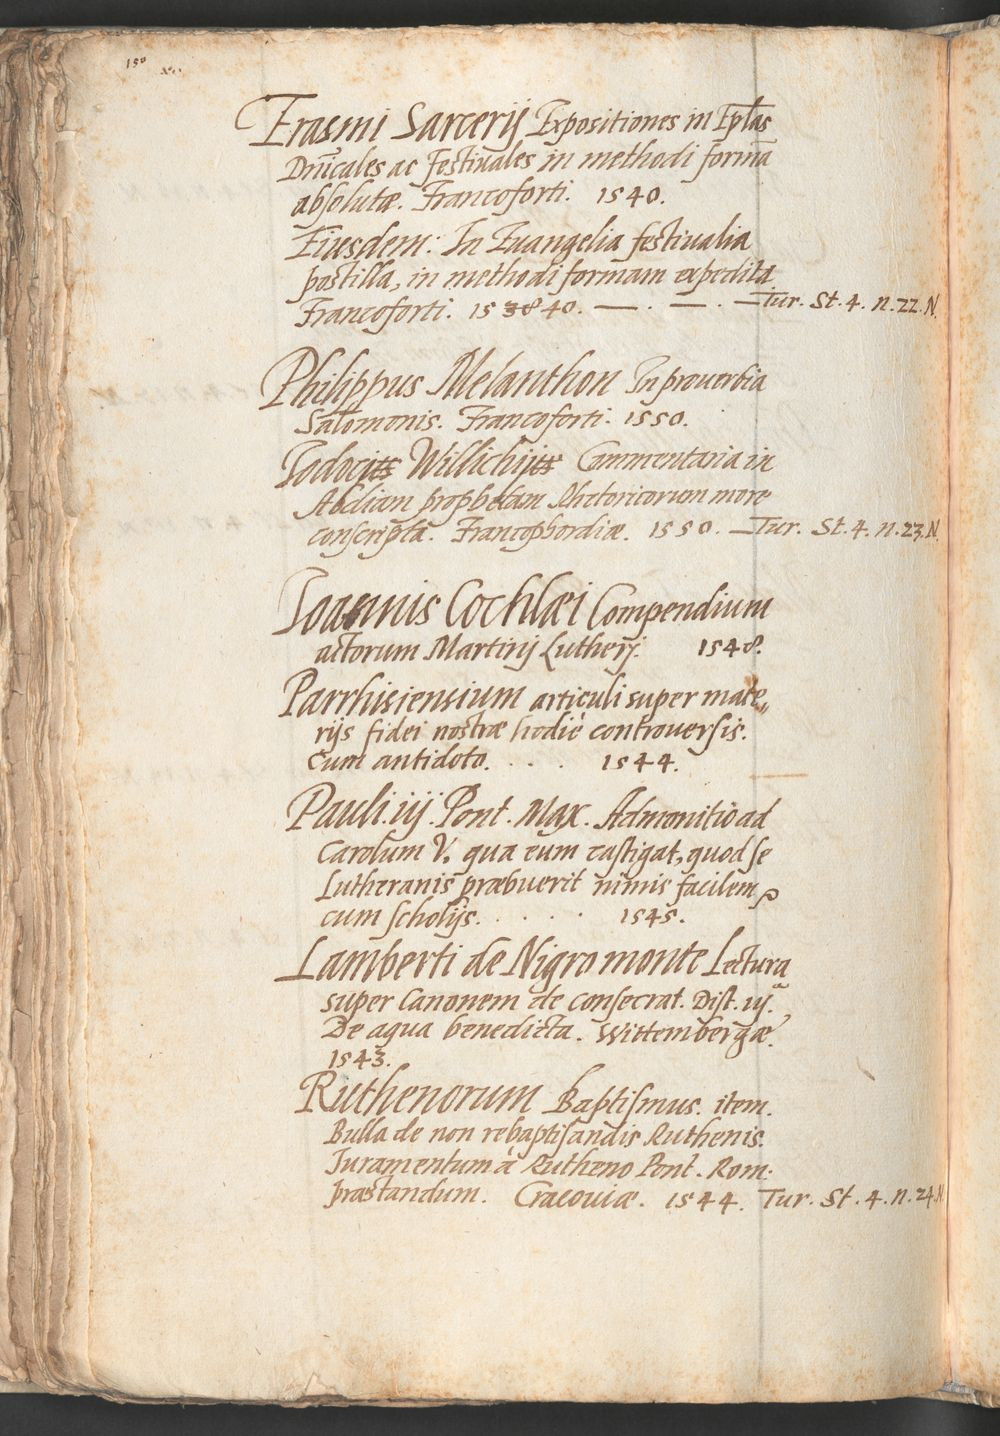 150
Erasmi Sarcerij Expositiones in Epl̃as
Dn̄icales ac Festiuales in methodi formā
absolutæ. Francoforti. 1540.
Eiusdem: In Euangelia festiualia
postilla, in methodi formam expedita
Francoforti. 15 38 40. — . — . — Tur. St. 4. n. 22. N.
Philippus Melanthon In prouerbia
Salomonis. Francoforti. 1550.
Iodoci Willichij Commentaria in
Abdiam prophetam Rhetoricorum more
conscripta. Francophordiæ. 1550. — Tur. St. 4. n. 23. N.
Ioannis Cochlæi Compendium
actorum Martinj Lutherj. 1548.
Parrhisiensium articuli super mate„
rijs fidei nostræ hodiè controuersis.
Cum antidoto. . . . 1544.
Pauli. iij. Pont. Max. Admonitio ad
Carolum V. qua eum castigat, quod se
Lutheranis præbuerit nimis facilem
cum scholijs. . . . . 1545.
Lamberti de Nigromonte Lectura
super Canonem de consecrat. Dist. iij.ª
De aqua benedicta. Wittembergæ.
1543.
Ruthenorum Baptismus. item.
Bulla de non rebaptisandis Ruthenis.
Iuramentum à Rutheno Pont. Rom.
præstandum. Cracouiæ. 1544. Tur. St. 4. n. 24. N.